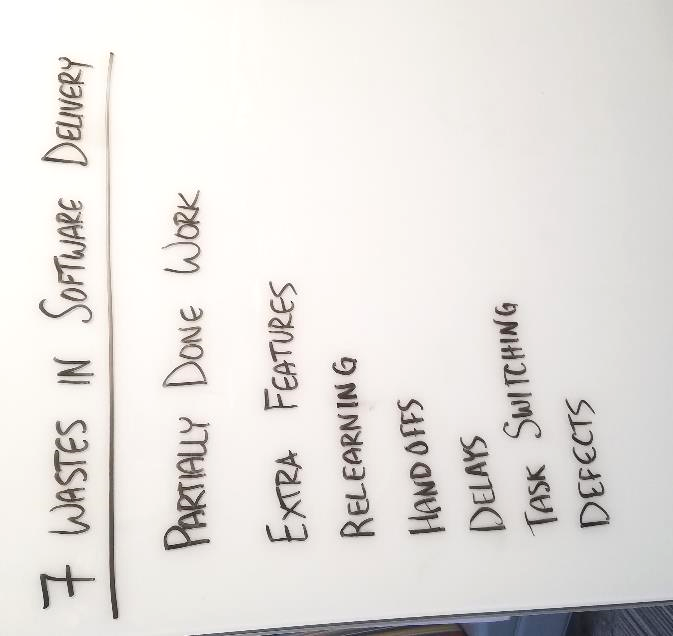 7 WASTES IN SOFTWARE DELIVERY
PARTIALLY DONE WORK
EXTRA FEATURES
RELEARNING
HANDOFFS
DELAYS
TASK SWITCHING
DEFECTS